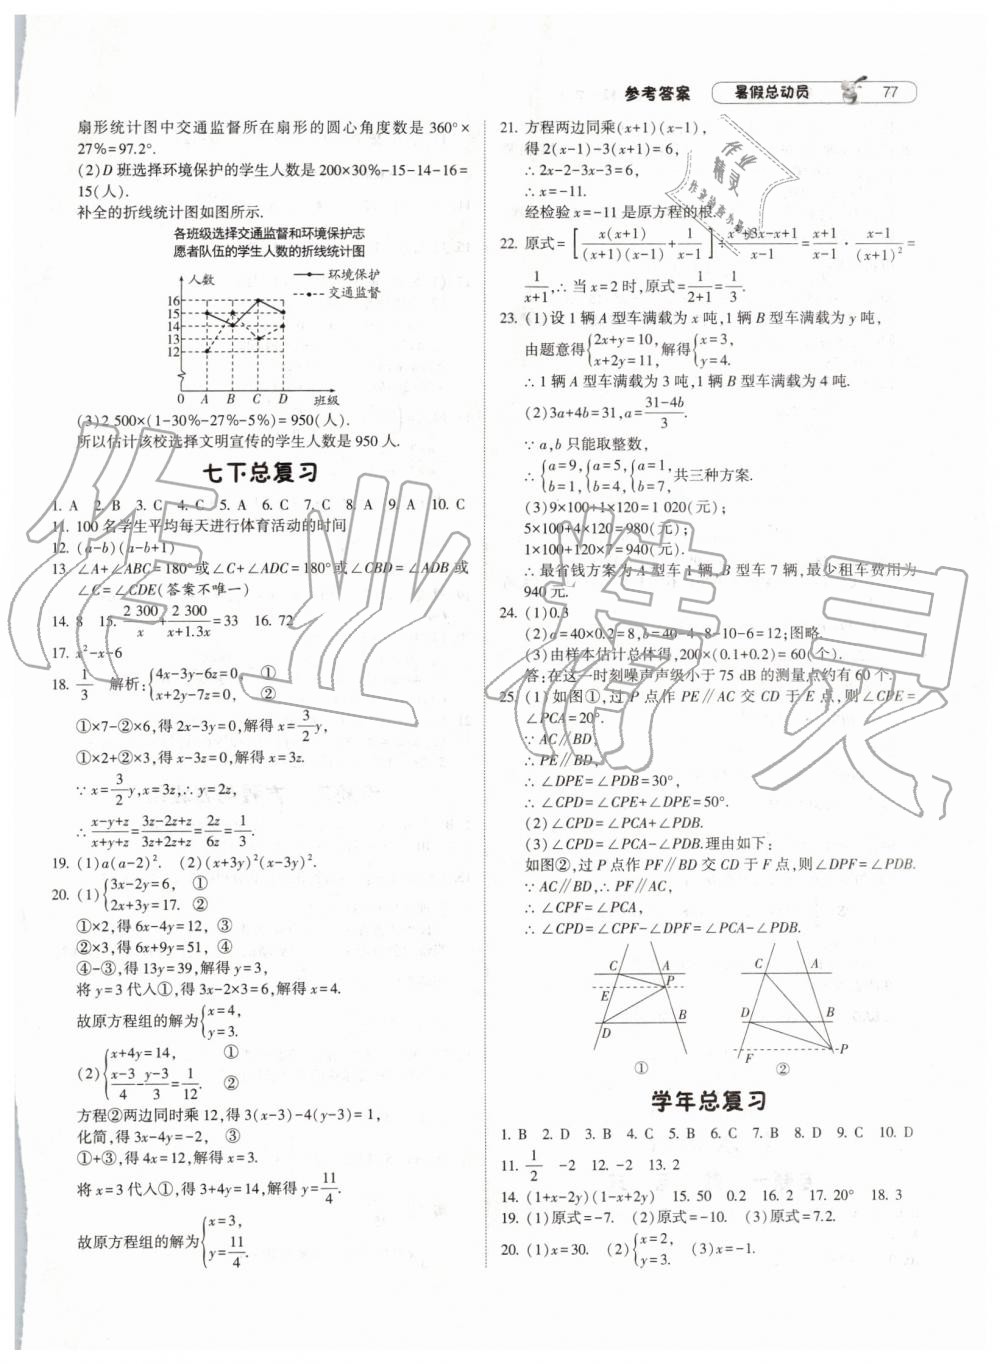 参考答案 暑假总动员 77
扇形统计图中交通监督所在扇形的圆心角度数是 360°×
27%=97.2°.
(2)D 班选择环境保护的学生人数是 200×30%-15-14-16=
15(人).
补全的折线统计图如图所示.
各班级选择交通监督和环境保护志
愿者队伍的学生人数的折线统计图
人数
环境保护
交通监督
16
15
14
13
12
0 A B C D 班级
(3)2 500×(1-30%-27%-5%)=950(人).
所以估计该校选择文明宣传的学生人数是 950 人.
七下总复习
1. A 2. B 3. C 4. C 5. A 6. C 7. C 8. A 9. A 10. C
11. 100 名学生平均每天进行体育活动的时间
12. (a-b)(a-b+1)
13. ∠A+∠ABC=180°或∠C+∠ADC=180°或∠CBD=∠ADB 或
∠C=∠CDE(答案不唯一)
14. 8 15. 2 300/x + 2 300/(x+1.3x) =33 16. 72
17. x²-x-6
18. 1/3 解析:{4x-3y-6z=0, ①
x+2y-7z=0, ②
①×7-②×6,得 2x-3y=0,解得 x=3/2 y,
①×2+②×3,得 x-3z=0,解得 x=3z.
∵x=3/2 y,x=3z,∴y=2z,
∴ (x-y+z)/(x+y+z) = (3z-2z+z)/(3z+2z+z) = 2z/6z = 1/3.
19. (1)a(a-2)². (2)(x+3y)²(x-3y)².
20. (1){3x-2y=6, ①
2x+3y=17. ②
①×2,得 6x-4y=12, ③
②×3,得 6x+9y=51, ④
④-③,得 13y=39,解得 y=3,
将 y=3 代入①,得 3x-2×3=6,解得 x=4.
故原方程组的解为{x=4,
y=3.
(2){x+4y=14, ①
(x-3)/4 - (y-3)/3 = 1/12. ②
方程②两边同时乘 12,得 3(x-3)-4(y-3)=1,
化简,得 3x-4y=-2, ③
①+③,得 4x=12,解得 x=3.
将 x=3 代入①,得 3+4y=14,解得 y=11/4.
故原方程组的解为{x=3,
y=11/4.
21. 方程两边同乘(x+1)(x-1),
得 2(x-1)-3(x+1)=6,
∴2x-2-3x-3=6,
∴x=-11.
经检验 x=-11 是原方程的根.
22. 原式=[x(x+1)/((x+1)(x-1)) + 1/(x-1)]÷(x²+3x-x+1)/(x-1) = (x+1)/(x-1) · (x-1)/(x+1)² =
1/(x+1),∴当 x=2 时,原式=1/(2+1)=1/3.
23. (1)设 1 辆 A 型车满载为 x 吨,1 辆 B 型车满载为 y 吨,
由题意得{2x+y=10, x+2y=11, 解得{x=3, y=4.
∴1 辆 A 型车满载为 3 吨,1 辆 B 型车满载为 4 吨.
(2)3a+4b=31,a=(31-4b)/3.
∵a,b 只能取整数,
∴{a=9, b=1,{a=5, b=4,{a=1, b=7,共三种方案.
(3)9×100+1×120=1 020(元);
5×100+4×120=980(元);
1×100+120×7=940(元).
∴最省钱方案为 A 型车 1 辆,B 型车 7 辆,最少租车费用为
940 元.
24. (1)0.3
(2)a=40×0.2=8,b=40-4-8-10-6=12;图略.
(3)由样本估计总体得,200×(0.1+0.2)=60(个).
答:在这一时刻噪声声级小于 75 dB 的测量点约有 60 个.
25. (1)如图①,过 P 点作 PE∥AC 交 CD 于 E 点,则∠CPE=
∠PCA=20°.
∵AC∥BD,
∴PE∥BD,
∴∠DPE=∠PDB=30°,
∴∠CPD=∠CPE+∠DPE=50°.
(2)∠CPD=∠PCA+∠PDB.
(3)∠CPD=∠PCA-∠PDB.理由如下:
如图②,过 P 点作 PF∥BD 交 CD 于 F 点,则∠DPF=∠PDB.
∵AC∥BD,∴PF∥AC,
∴∠CPF=∠PCA,
∴∠CPD=∠CPF-∠DPF=∠PCA-∠PDB.
C A P E B D ①
C A D B P F ②
学年总复习
1. B 2. D 3. B 4. C 5. B 6. C 7. B 8. D 9. C 10. D
11. 1/2 -2 12. -2 13. 2
14. (1+x-2y)(1-x+2y) 15. 50 0.2 16. 2 17. 20° 18. 3
19. (1)原式=-7. (2)原式=-10. (3)原式=7.2.
20. (1)x=30. (2){x=2, y=3. (3)x=-1.
作业精灵
作业
精灵